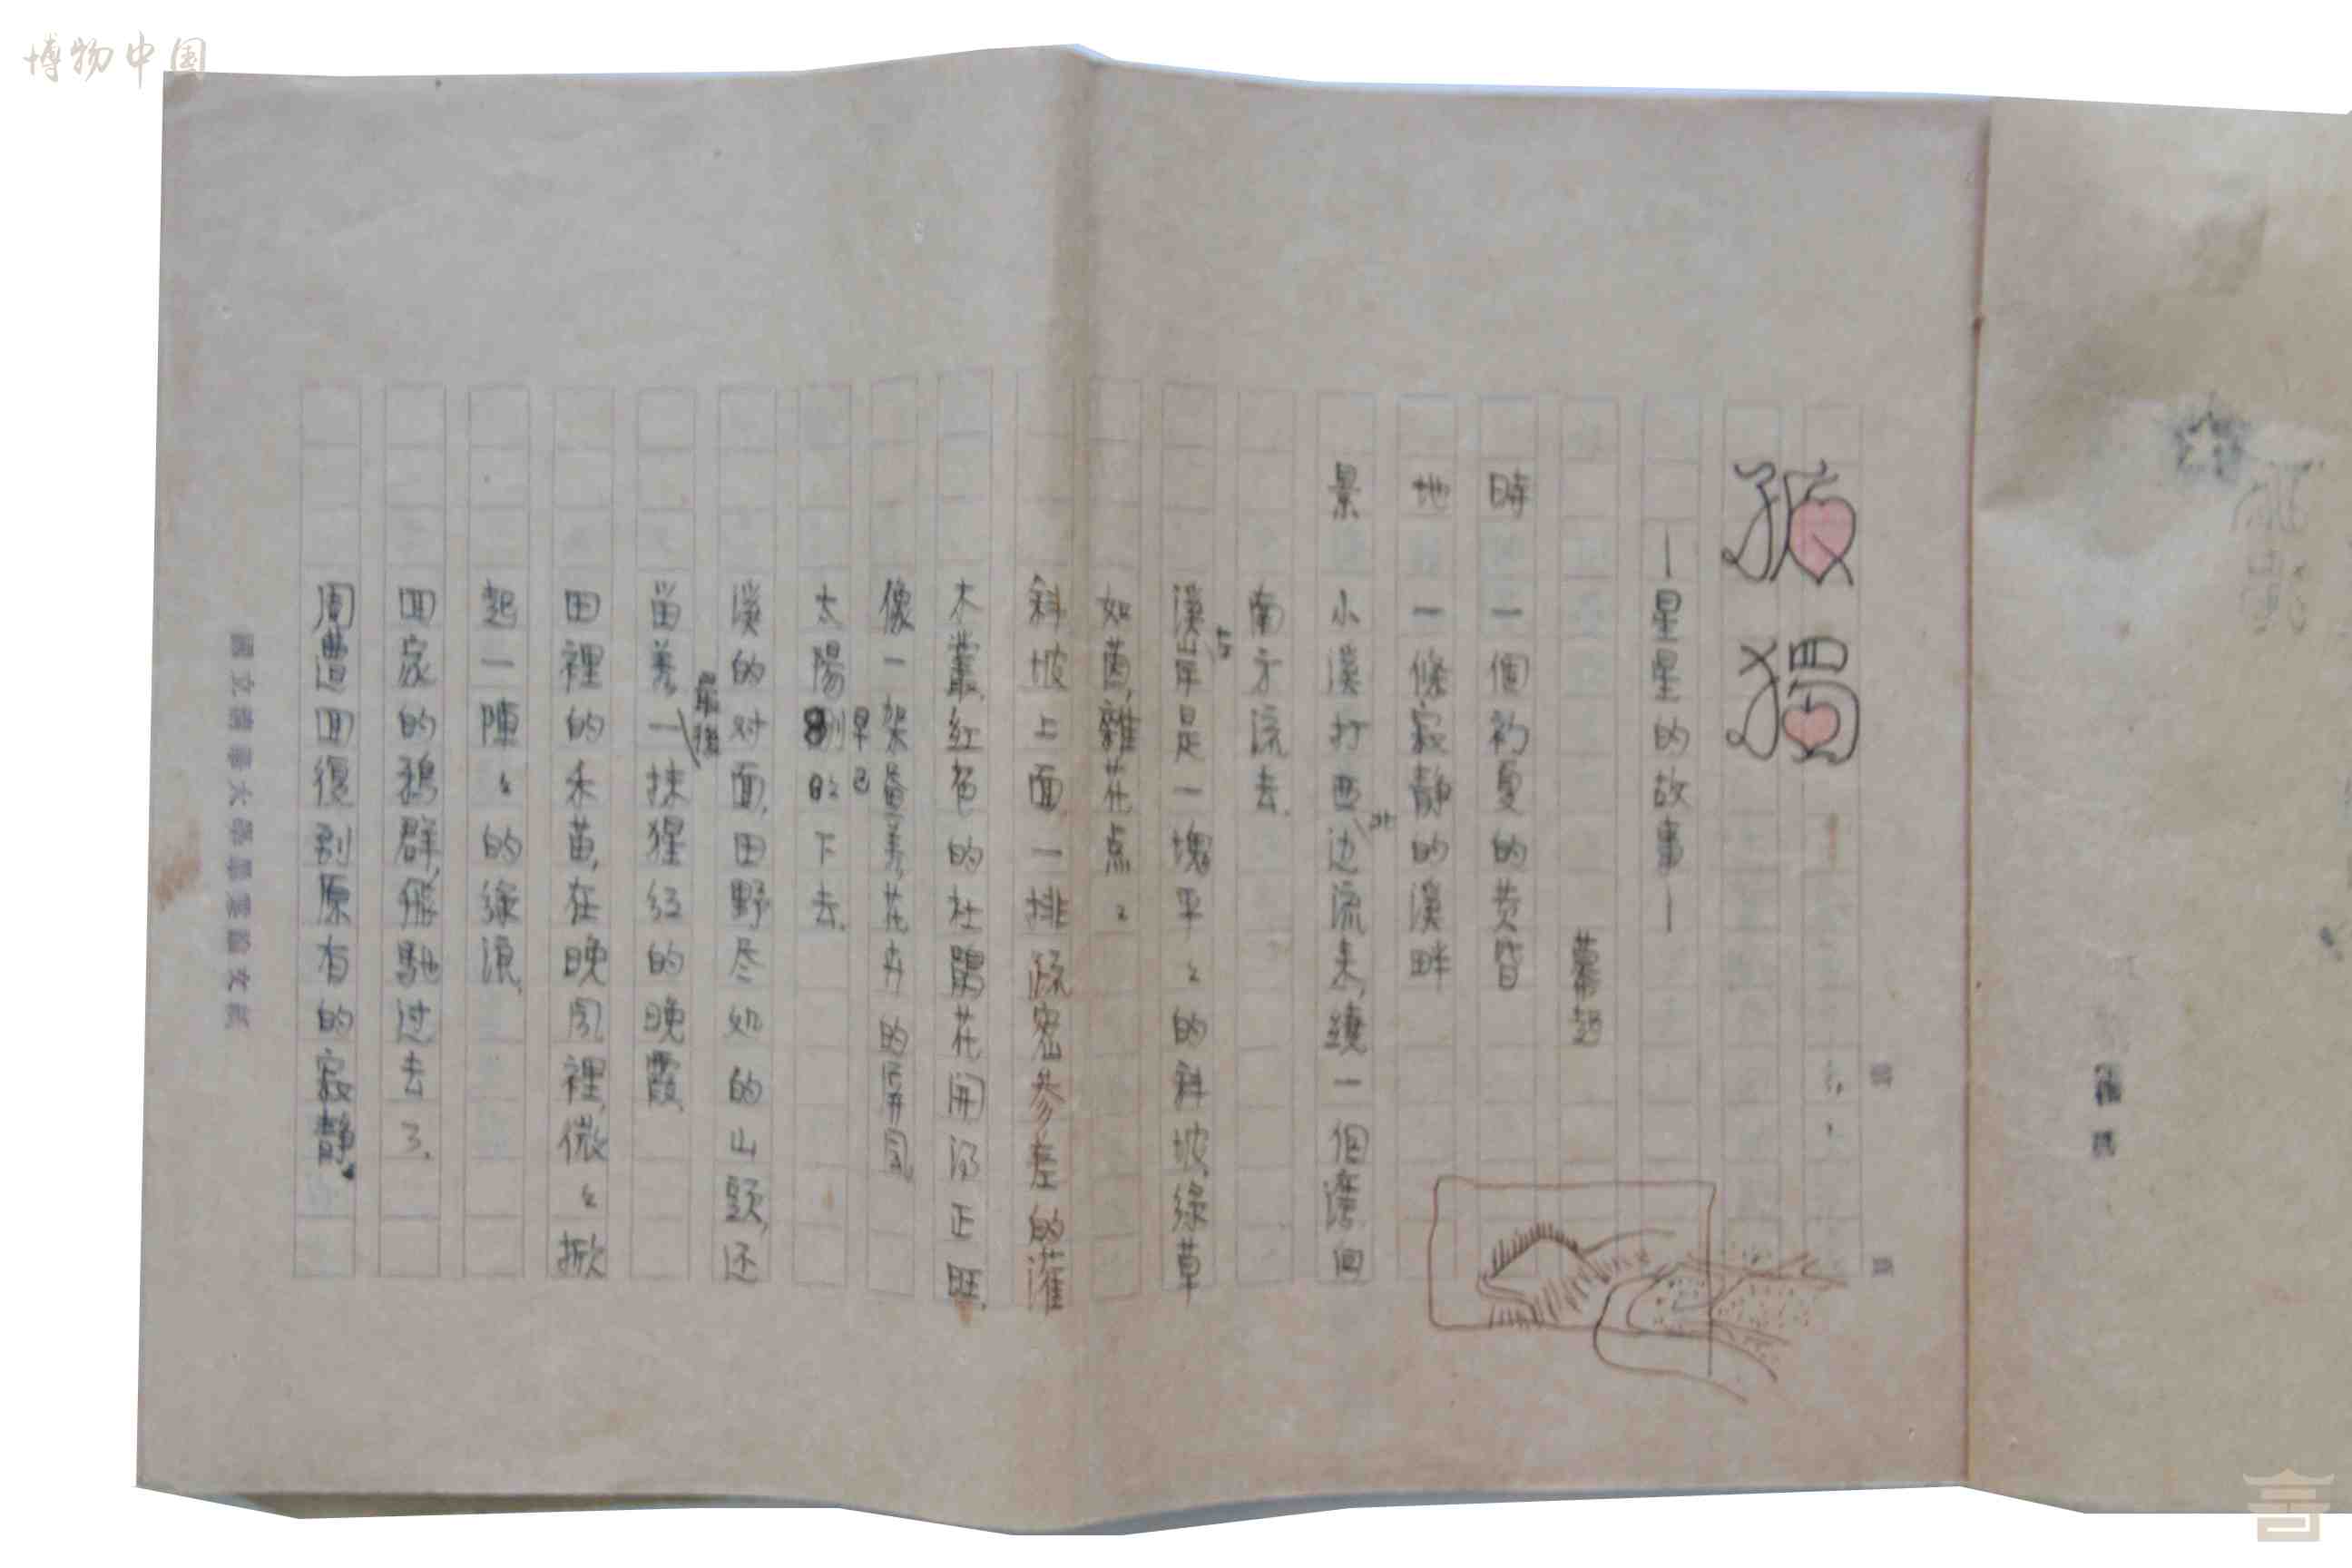 博物中国
孤獨
—星星的故事—
時 一個初夏的黄昏
地 一條寂静的溪畔
景 小溪打西北边流来,繞一個湾,向
南方流去.
溪岸是一塊平々的斜坡,綠草
如茵,雜花点々
斜坡上面,一排疏密参差的灌
木叢,紅色的杜鵑花開得正旺,
像一架叠着花卉的屏風.
太陽早已下去.
溪的对面,田野尽处的山頭,还
留着最後一抹猩红的晚霞.
田裡的禾苗,在晚風裡,微々掀
起一陣々的綠浪.
回家的鴉群,飛馳过去了.
周遭回復到原有的寂静.
國立清華大學畢業論文紙
第
頁